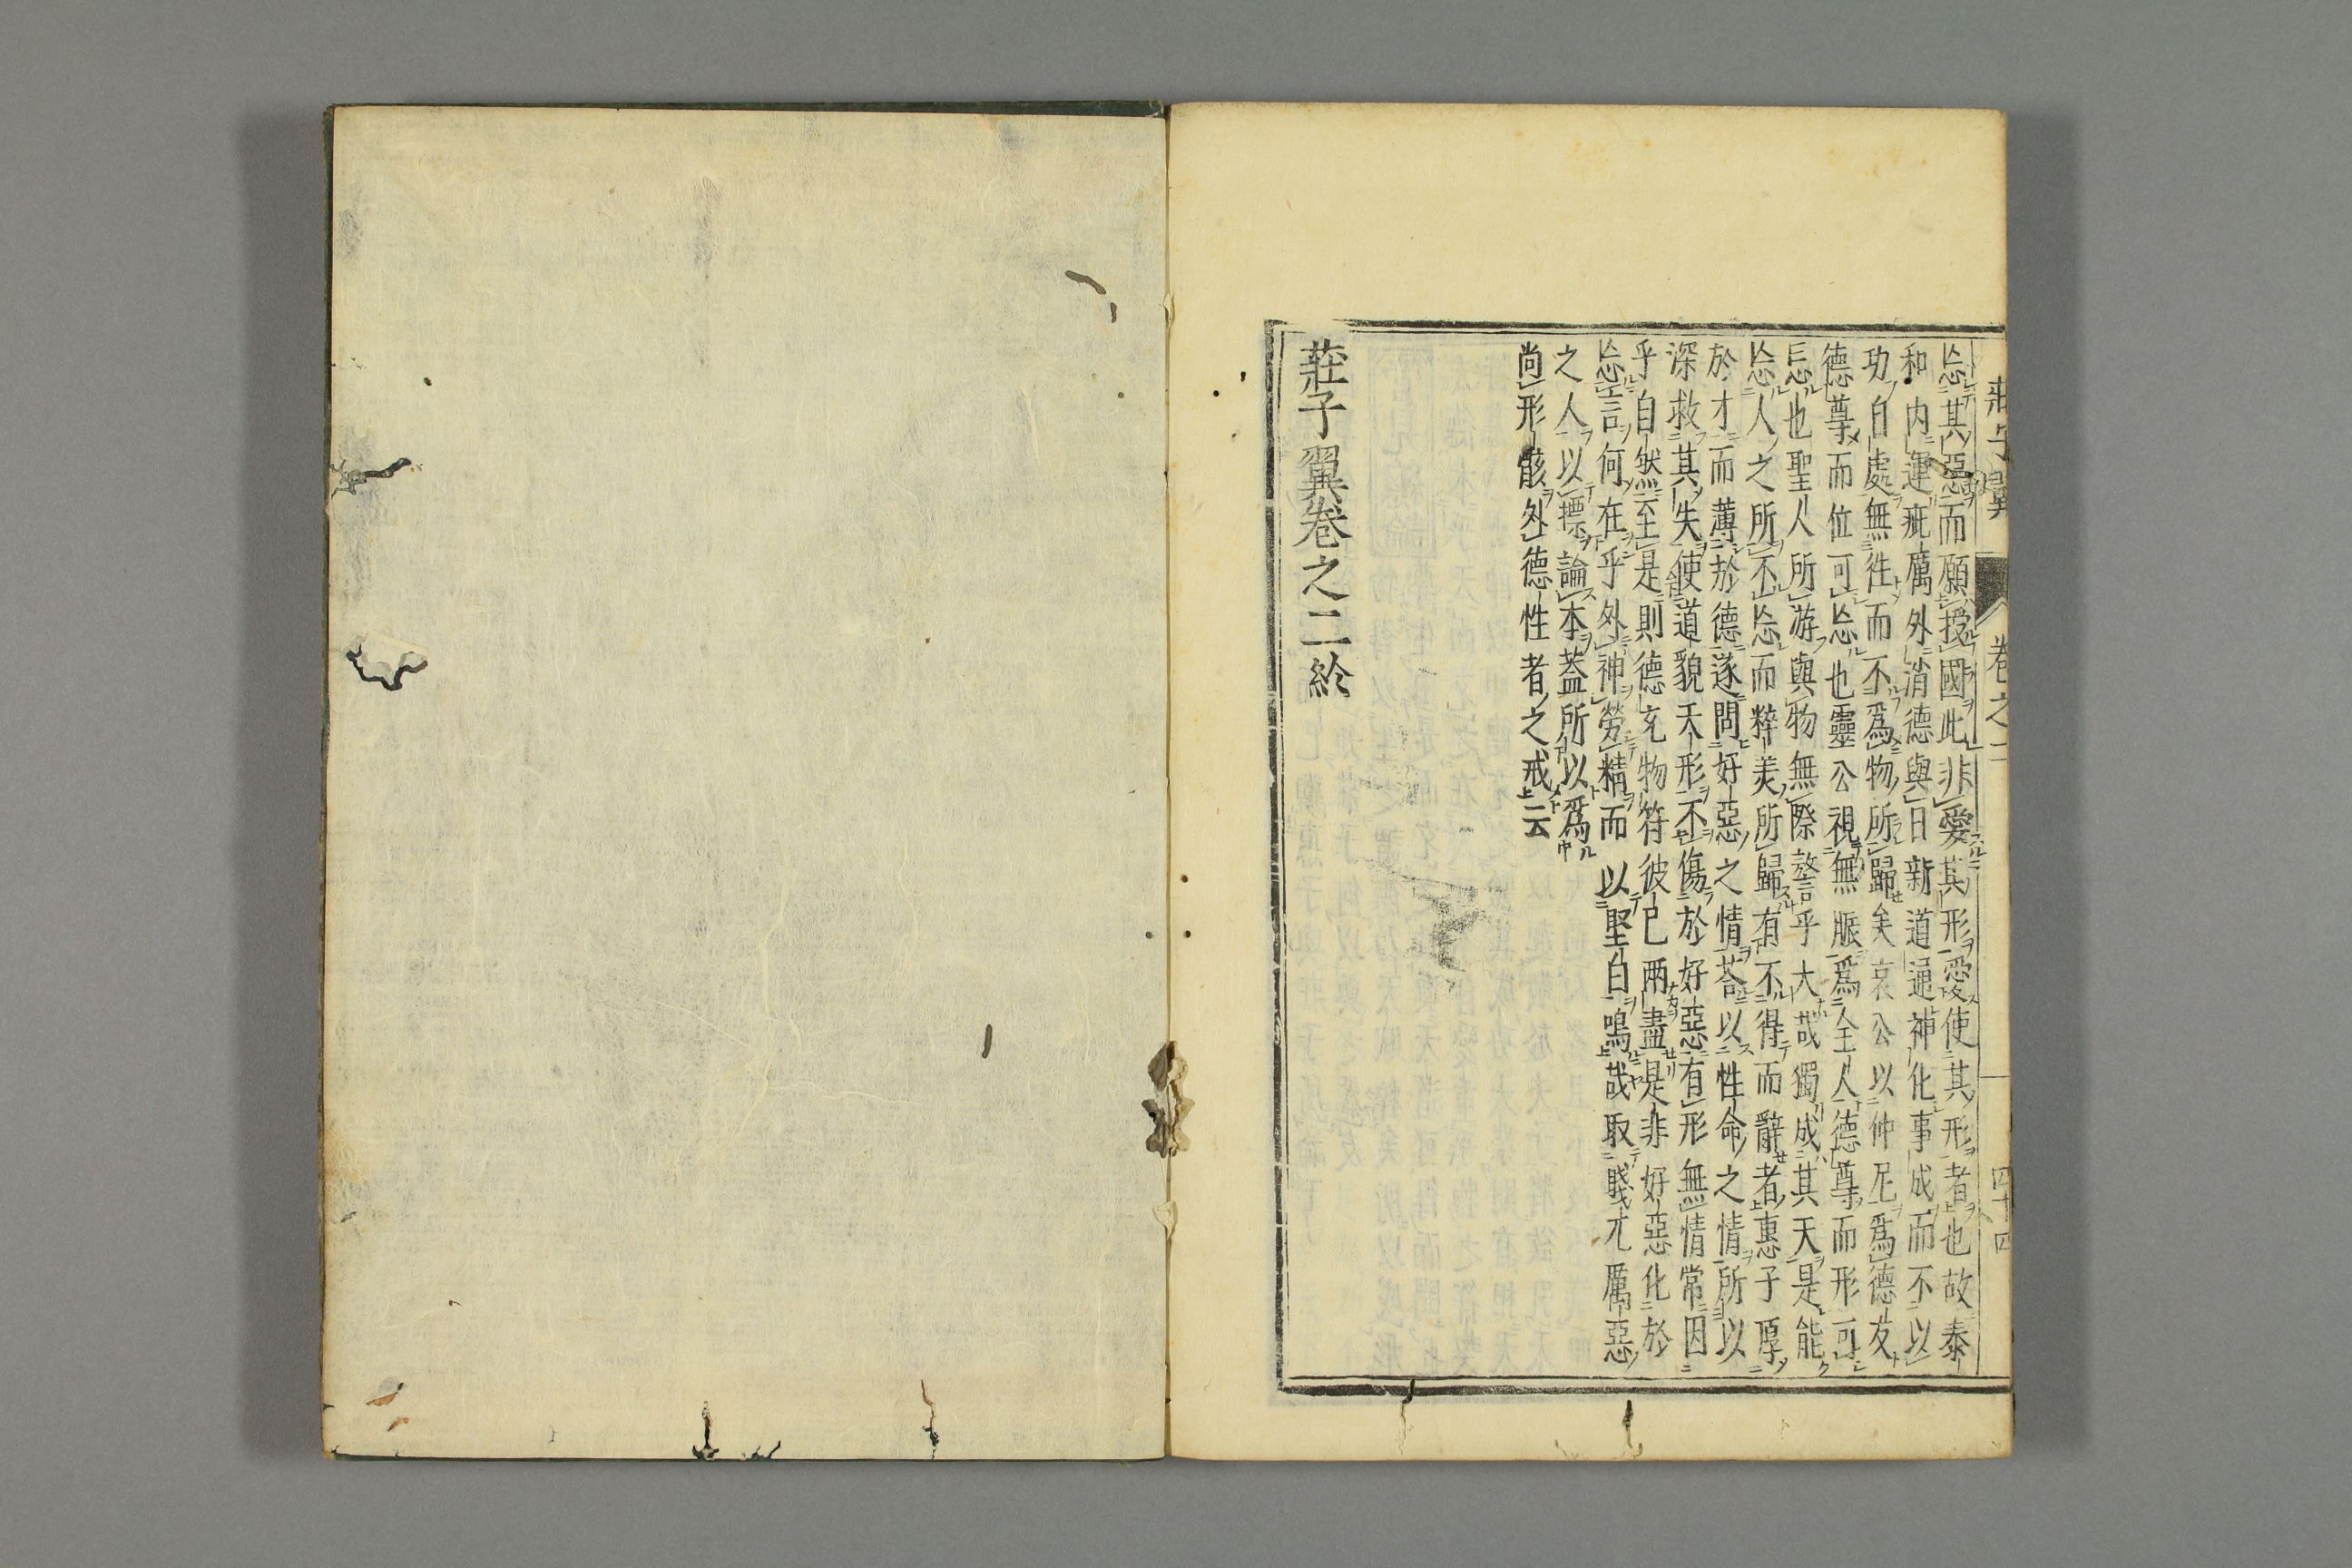 莊子翼　卷之二　四十四
忘其惡而願授國此非愛其形愛使其形者也故泰
和內運疵厲外消德與日新道通神化事成而不以
功自處無往而不爲物所歸矣哀公以仲尼爲德友
德尊而位可忘也靈公視無脤爲全人德尊而形可
忘也聖人所游與物無際謷乎大哉獨成其天是能
忘人之所不忘而粹美所歸有不得而辭者惠子厚
於才而薄於德遂問好惡之情荅以性命之情所以
深救其失使道貌天形不傷於好惡有形無情常因
乎自然至是則德充物符彼已兩盡是非好惡化於
忘言何在乎外神勞精而以堅白鳴哉取賤尤厲惡
之人以摽論本蓋所以爲
尚形骸外德性者之戒云
莊子翼卷之二終